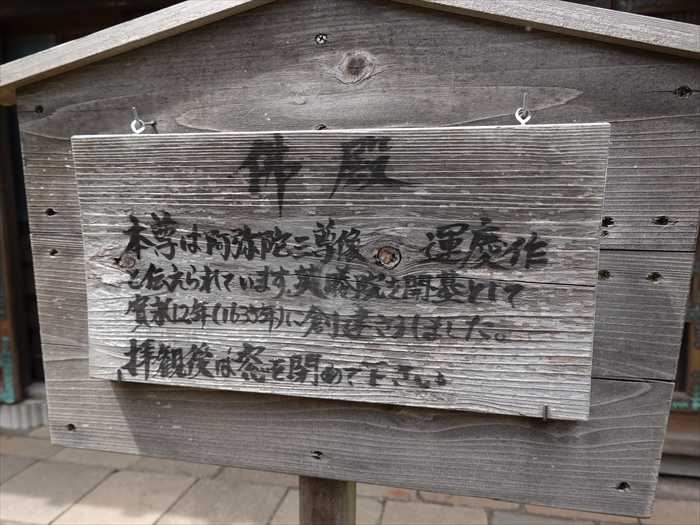 佛殿
本尊は阿弥陀三尊像 運慶作
と伝えられています。英勝院を開基として
寛永12年(1635年)に創建されました。
拝観後は窓を閉めて下さい。